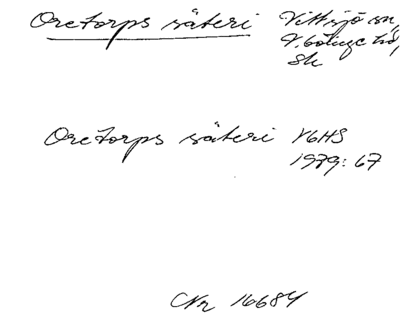 Oretorps säteri Vittsjö sn,
V. Göinge hd,
Sk
Oretorps säteri VGHS
1979: 67
Nr 16684